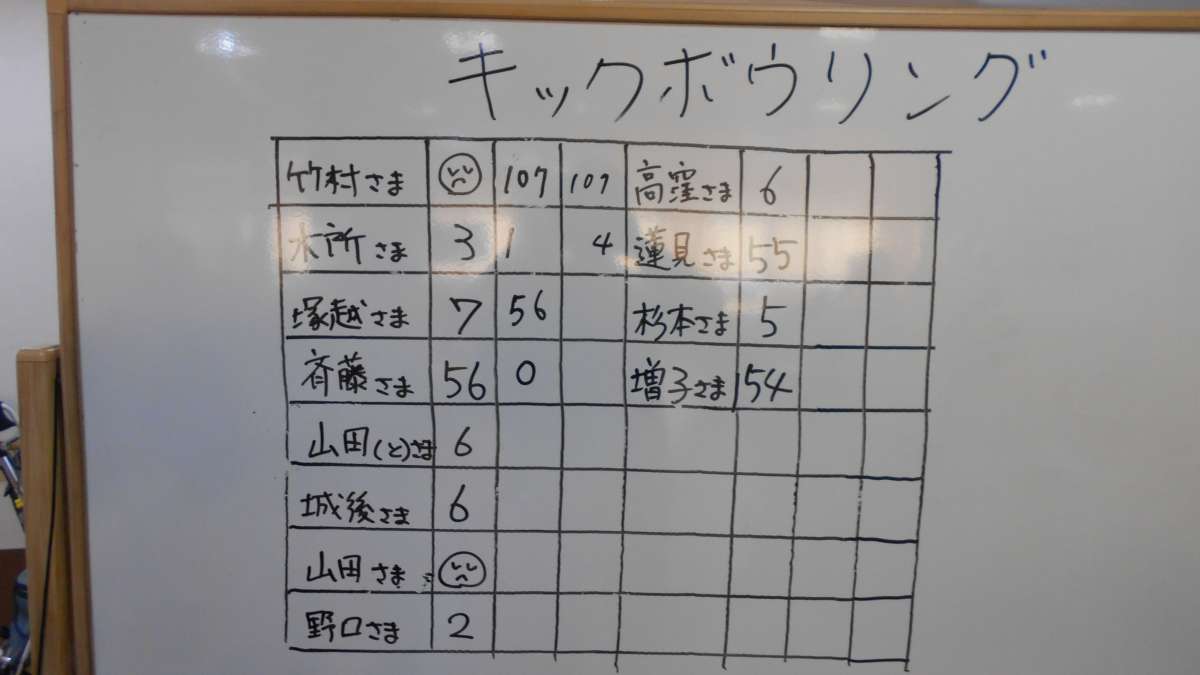 キックボウリング
竹村さま 107 107 高窪さま 6
木所さま 3 1 4 蓮見さま 55
塚越さま 7 56 杉本さま 5
斉藤さま 56 0 増子さま 54
山田(と)さま 6
城後さま 6
山田さま
野口さま 2